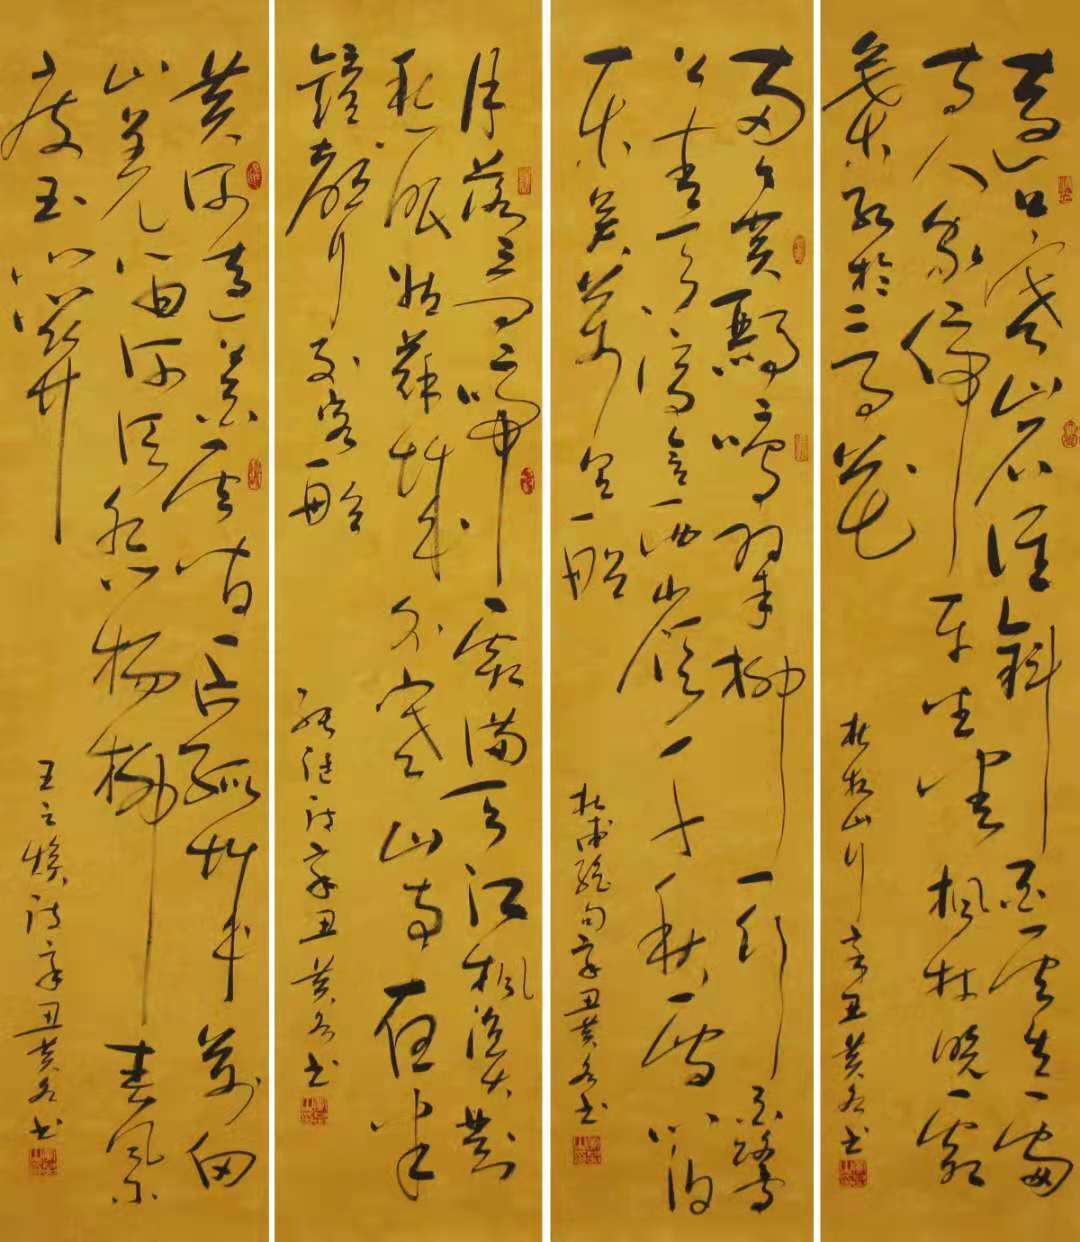 遠上寒山石徑斜白雲生處
有人家停車坐愛枫林晚霜
葉红於二月花
杜牧山行辛丑黄书
两个黄鸝鳴翠柳一行白鹭
上青天窗含西岭千秋雪门泊
东吴萬里船
杜甫绝句辛丑黄书
月落烏啼霜满天江枫渔火對
愁眠姑蘇城外寒山寺夜半
鐘聲到客船
张继诗辛丑黄书
黄河遠上白雲间一片孤城萬仞
山羌笛何须怨杨柳春风不
度玉门關
王之焕诗辛丑黄书